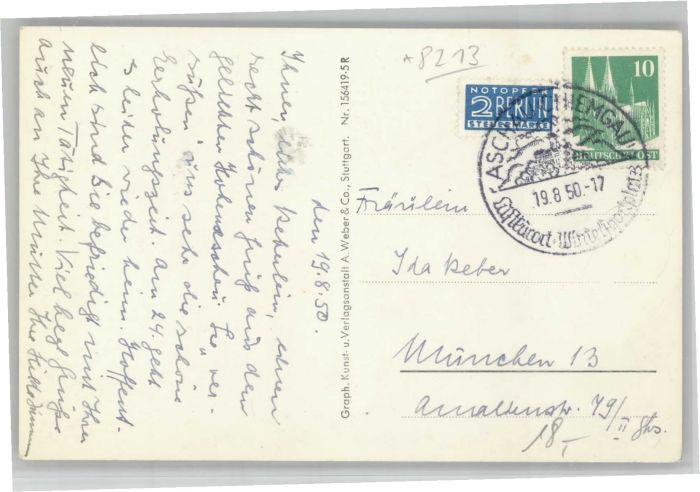 *8213
NOTOPFER
2 BERLIN
STEUERMARKE
10
DEUTSCHE POST
ASCHAU CHIEMGAU
19.8.50.-17
Luftkurort Wintersportplatz
den 19.8.50.
Ihnen, liebes, einen
recht schönen Gruß aus dem
geliebten Hohenaschau. Sie "ver-
süßen" uns sehr die schöne
Erholungszeit. Am 24. geht
es leider wieder heim. Hoffent-
lich sind Sie befriedigt mit Ihrer
neuen Tätigkeit. Viel herzl. Grüße
auch an Ihre Mutter Ihre
Graph. Kunst- u. Verlagsanstalt A. Weber & Co., Stuttgart. Nr. 156419·5 R
Fräulein
Ida Keber
München 13
Amalienstr. 79/II
18,-